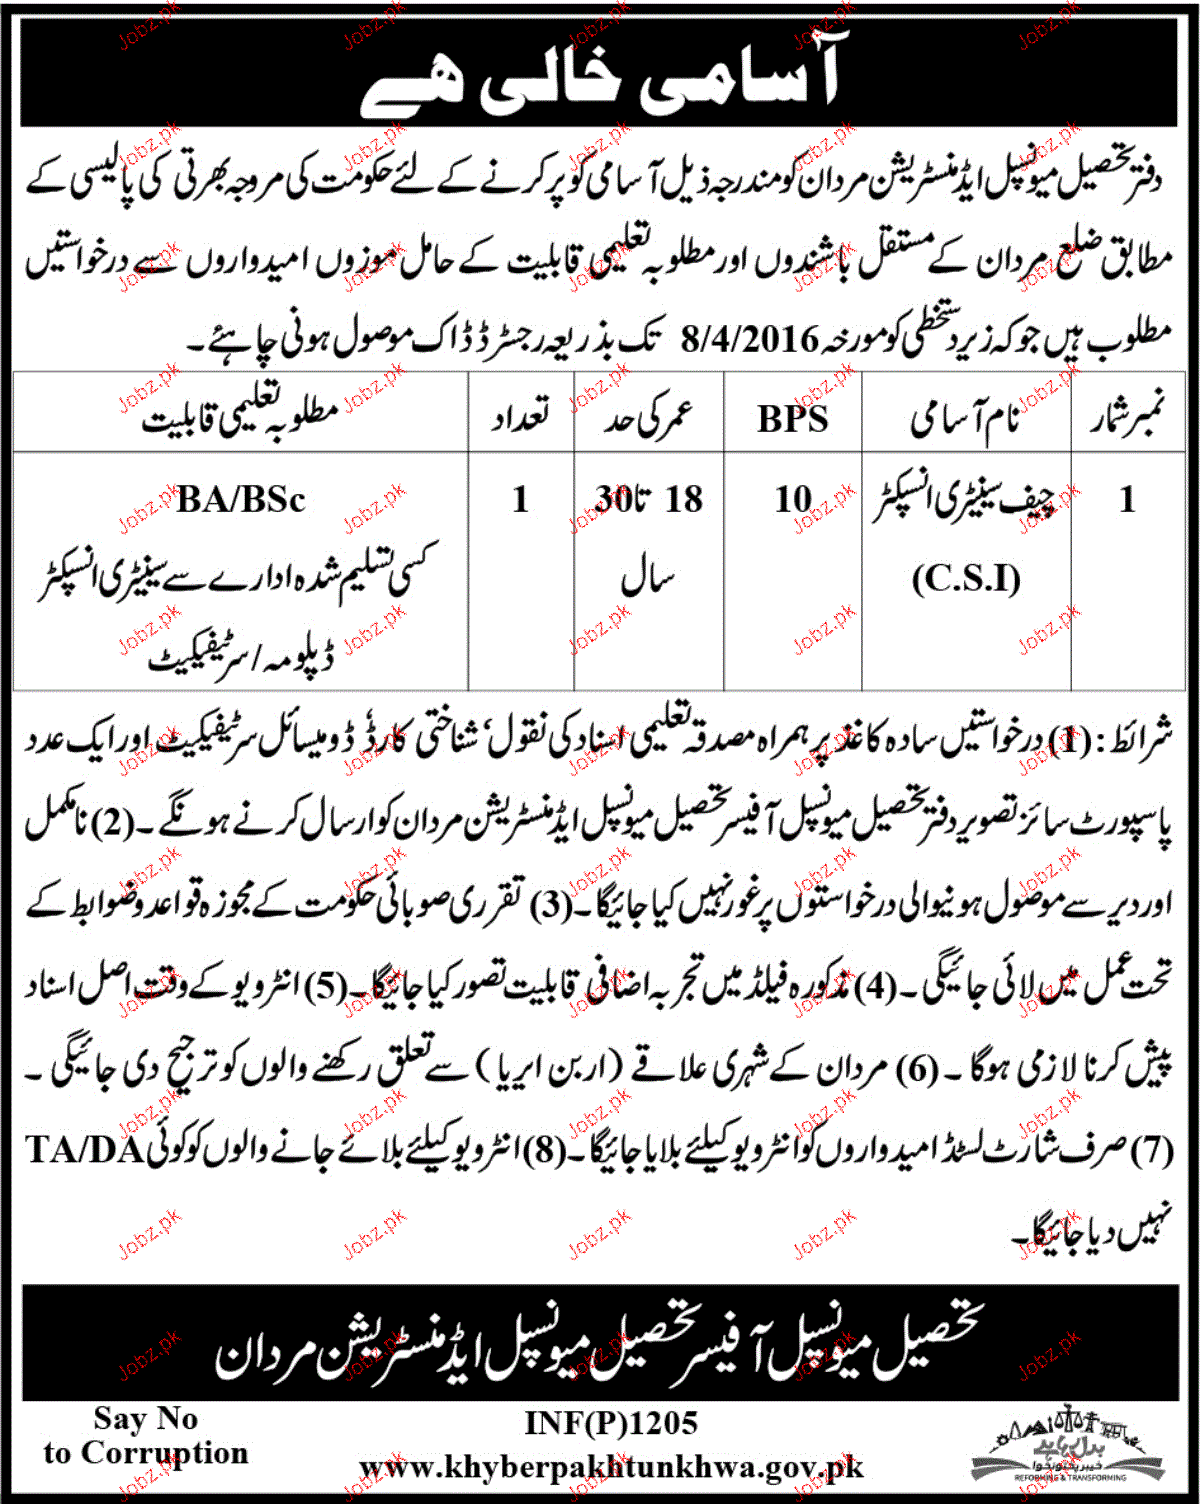 آسامی خالی ھے
دفتر تحصیل میونسپل ایڈمنسٹریشن مردان کو مندرجہ ذیل آسامی کو پر کرنے کے لئے حکومت کی مروجہ بھرتی کی پالیسی کے
مطابق ضلع مردان کے مستقل باشندوں اور مطلوبہ تعلیمی قابلیت کے حامل موزوں امیدواروں سے درخواستیں
مطلوب ہیں جو کہ زیر دستخطی کو مورخہ 8/4/2016 تک بذریعہ رجسٹرڈ ڈاک موصول ہونی چاہئے۔
نمبر شمار نام آسامی BPS عمر کی حد تعداد مطلوبہ تعلیمی قابلیت
1 چیف سینیٹری انسپکٹر 10 18 تا 30 1 BA/BSc
(C.S.I) سال کسی تسلیم شدہ ادارے سے سینیٹری انسپکٹر
ڈپلومہ/سرٹیفیکیٹ
شرائط: (1) درخواستیں سادہ کاغذ پر ہمراہ مصدقہ تعلیمی اسناد کی نقول، شناختی کارڈ، ڈومیسائل سرٹیفیکیٹ اور ایک عدد
پاسپورٹ سائز تصویر دفتر تحصیل میونسپل آفیسر تحصیل میونسپل ایڈمنسٹریشن مردان کو ارسال کرنے ہونگے۔ (2) نامکمل
اور دیر سے موصول ہونیوالی درخواستوں پر غور نہیں کیا جائیگا۔ (3) تقرری صوبائی حکومت کے مجوزہ قواعد و ضوابط کے
تحت عمل میں لائی جائیگی۔ (4) مذکورہ فیلڈ میں تجربہ اضافی قابلیت تصور کیا جائیگا۔ (5) انٹرویو کے وقت اصل اسناد
پیش کرنا لازمی ہوگا۔ (6) مردان کے شہری علاقے (اربن ایریا) سے تعلق رکھنے والوں کو ترجیح دی جائیگی۔
(7) صرف شارٹ لسٹڈ امیدواروں کو انٹرویو کیلئے بلایا جائیگا۔ (8) انٹرویو کیلئے بلائے جانے والوں کو کوئی TA/DA
نہیں دیا جائیگا۔
تحصیل میونسپل آفیسر تحصیل میونسپل ایڈمنسٹریشن مردان
Say No
to Corruption
INF(P)1205
www.khyberpakhtunkhwa.gov.pk
بدل رہا ہے
خیبر پختونخوا
REFORMING & TRANSFORMING
Jobz.pk